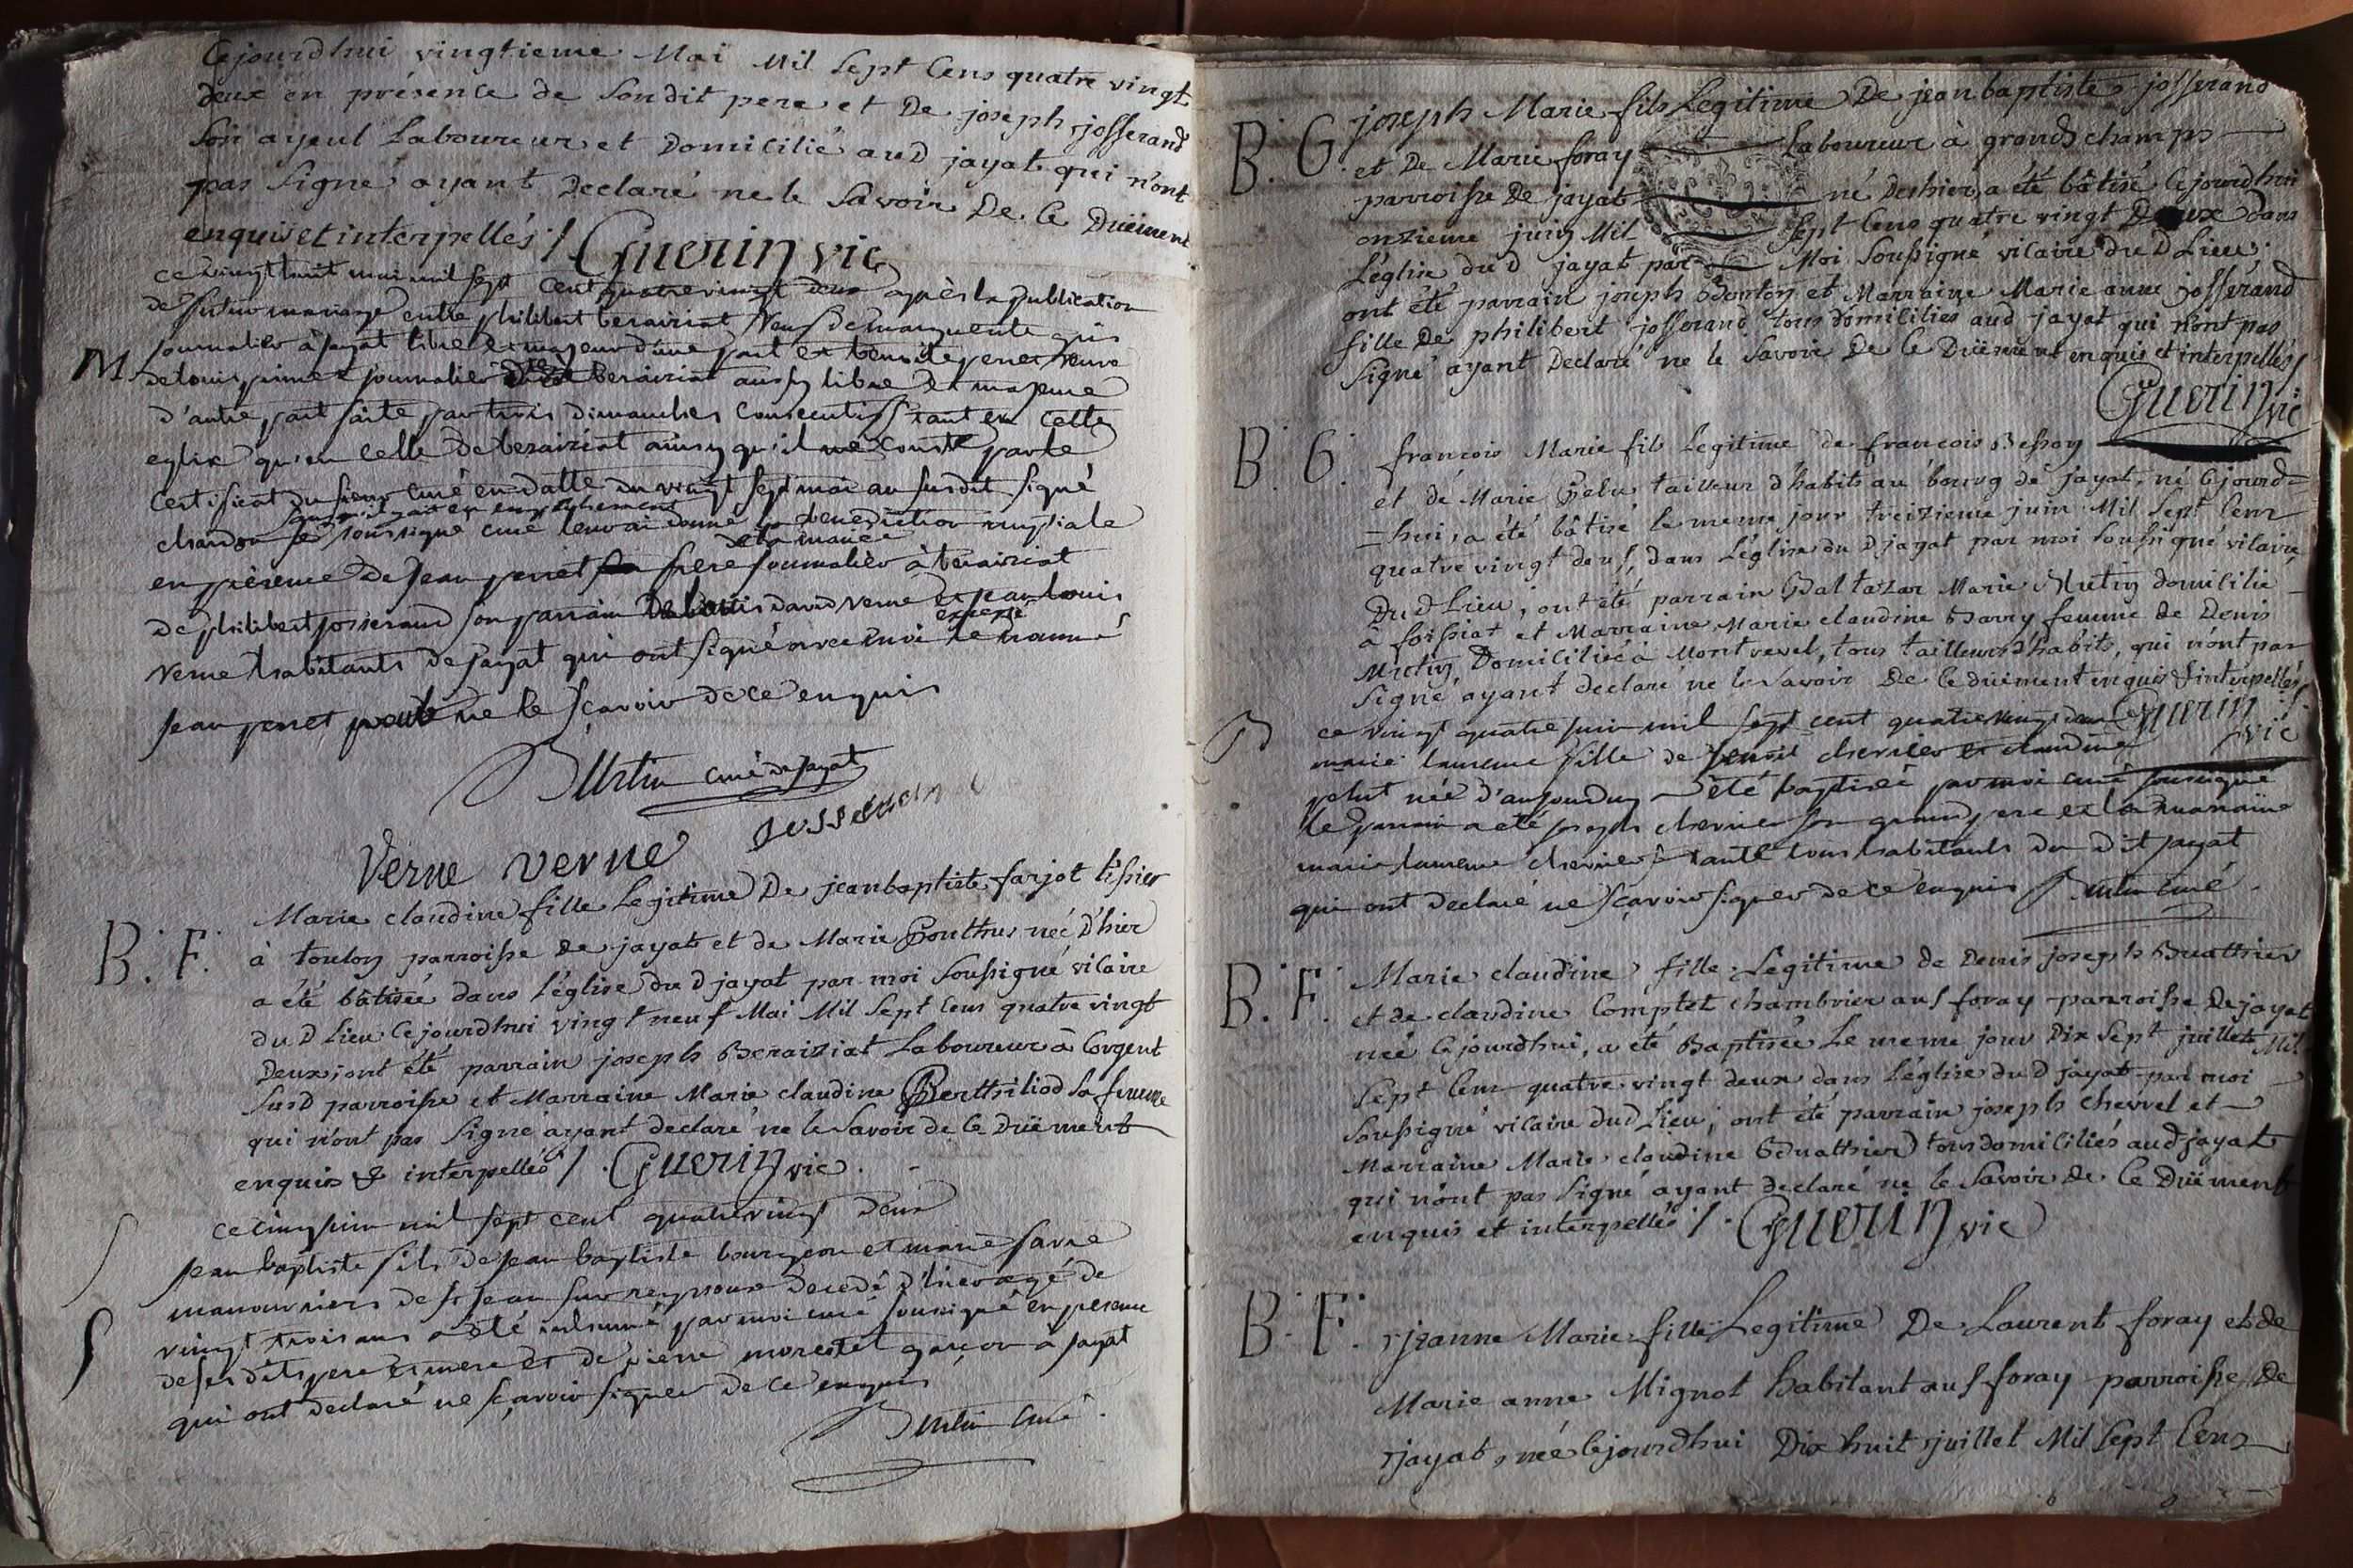 Cejourdhui vingtieme Mai Mil Sept Cens quatre vingt
deux en présence de Sondit pere et De joseph josserand
Son ayeul Laboureur et Domicilié aud jayat qui n'ont
pas Signé ayant Declaré ne le Savoir De Ce Düement
enquis et interpellés ./. Guerin vic
ce vingt huit mai mil sept cent quatre vingt deux après la publication
de futur mariage entre philibert beraiziat veuf de marguerite
journalier à jayat libre et majeur d'une part et benoite perret veuve
M
de louis journalier beraiziat aussy libre et majeure
d'autre part faite par trois dimanches consecutifs tant en cette
eglise qu'en celle de beraiziat ainsy qu'il conste par le
certificat du sieur curé en datte du vingt sept mai au susdit signé
chardon je soussigné curé leur ai donné la benediction nuptiale
en présence de jean perret frere journalier à beraiziat
de philibert josserand son parrain david verne et jean louis
verne habitants de jayat qui ont signé avec moi excepté le nommé
jean perret pour ne le sçavoir de ce enquis
curé de jayat
Verne verne
B. F.
Marie claudine fille Legitime De jean baptiste farjot tissier
à toulon parroisse de jayat et de Marie Gonthus née D'hier
a été bâtisée dans L'église du D jayat par moi Soussigné vicaire
du D Lieu Cejourdhui vingt neuf Mai Mil Sept Cens quatre vingt
Deux; ont été parrain joseph Beraiziat Laboureur à Corgent
Susd parroisse et Marraine Marie claudine Berthiliod Sa femme
qui n'ont pas Signé ayant declaré ne le Savoir de Ce Düement
enquis & interpellés /. Guerin vic.
ce cinq juin mil sept cent quatre vingt deux
jean baptiste fils de jean baptiste bourgeon et marie
manouvriers de st jean sur reyssouze decedé d'hier agé de
vingt trois ans a été inhumé par moi curé soussigné en presence
de ses dits pere et mere et de pierre morestel garçon à jayat
qui ont declaré ne sçavoir signer de ce enquis
curé
B. G.
joseph Marie fils Legitime De jean baptiste josserand
et De Marie foray Laboureur à grands champs
parroisse De jayat né Derhier, a été bâtisé Cejourdhui
onzieme juin Mil Sept Cens quatre vingt Deux dans
L'église du D jayat par Moi Soussigné vicaire du D Lieu;
ont été parrain joseph Bonton et Marraine Marie anne josserand
fille De philibert josserand tous domiciliés aud jayat qui n'ont pas
Signé ayant Declaré ne le Savoir De Ce Düement enquis et interpellés/
Guerin vic
B. G.
francois Marie fils Legitime de francois Besson
et de Marie Pelu tailleur d'habits au bourg de jayat, né Cejourd=
=hui, a été bâtisé le meme jour treizieme juin Mil Sept Cens
quatre vingt deux, dans L'église du D jayat par moi Soussigné vicaire
Du d Lieu; ont été parrain Baltazar Marie Mutin domicilié
à foissiat et Marraine Marie claudine Barry femme de Denis
Mutin, Domiciliée à Montrevel, tous tailleurs d'habits, qui n'ont pas
Signé ayant declaré ne le Savoir De Ce düement enquis & interpellés/.
Guerin vic
ce vingt quatre juin mil sept cent quatre vingt deux
marie laurence fille de benoit chervier et claudine
pelut née d'aujourduy a été baptisée par moi curé soussigné
le parrain a été joseph chervier son grand pere et la marraine
marie laurence chervier sa tante tous habitants du dit jayat
qui ont declaré ne sçavoir signer de ce enquis curé
B. F.
Marie claudine fille Legitime de Denis joseph Buathier
et de claudine Comptet chambrier aux foray parroisse De jayat
née Cejourdhui, a été Baptisée Le meme jour Dix Sept juillet Mil
Sept Cens quatre vingt deux dans L'église du D jayat par moi
Soussigné vicaire dud Lieu; ont été parrain joseph Chevrel et
Marraine Marie claudine Buathier tous domiciliés aud jayat
qui n'ont pas Signé ayant declaré ne le Savoir de Ce Düement
enquis et interpellés /. Guerin vic
B. F.
jeanne Marie fille Legitime De Laurent foray et de
Marie anne Mignot habitant aux foray parroisse De
jayat, née Cejourdhui Dix huit juillet Mil Sept Cens